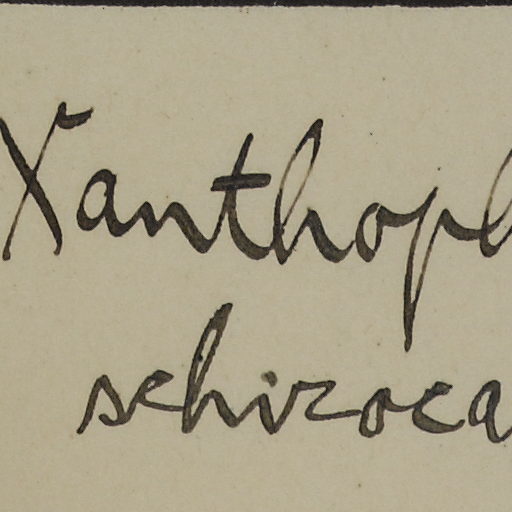 Xanthoph
schizoca